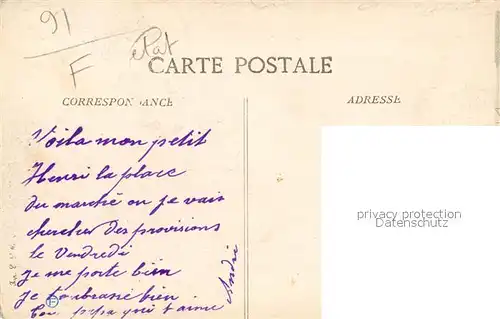 91
F
état
CARTE POSTALE
CORRESPONDANCE
ADRESSE
Voila mon petit
Henri la place
du marché ou je vais
chercher des provisions
le vendredi
je me porte bien
je t'embrasse bien
ton papa qui t'aime
André
privacy protection
www.oldthing.de